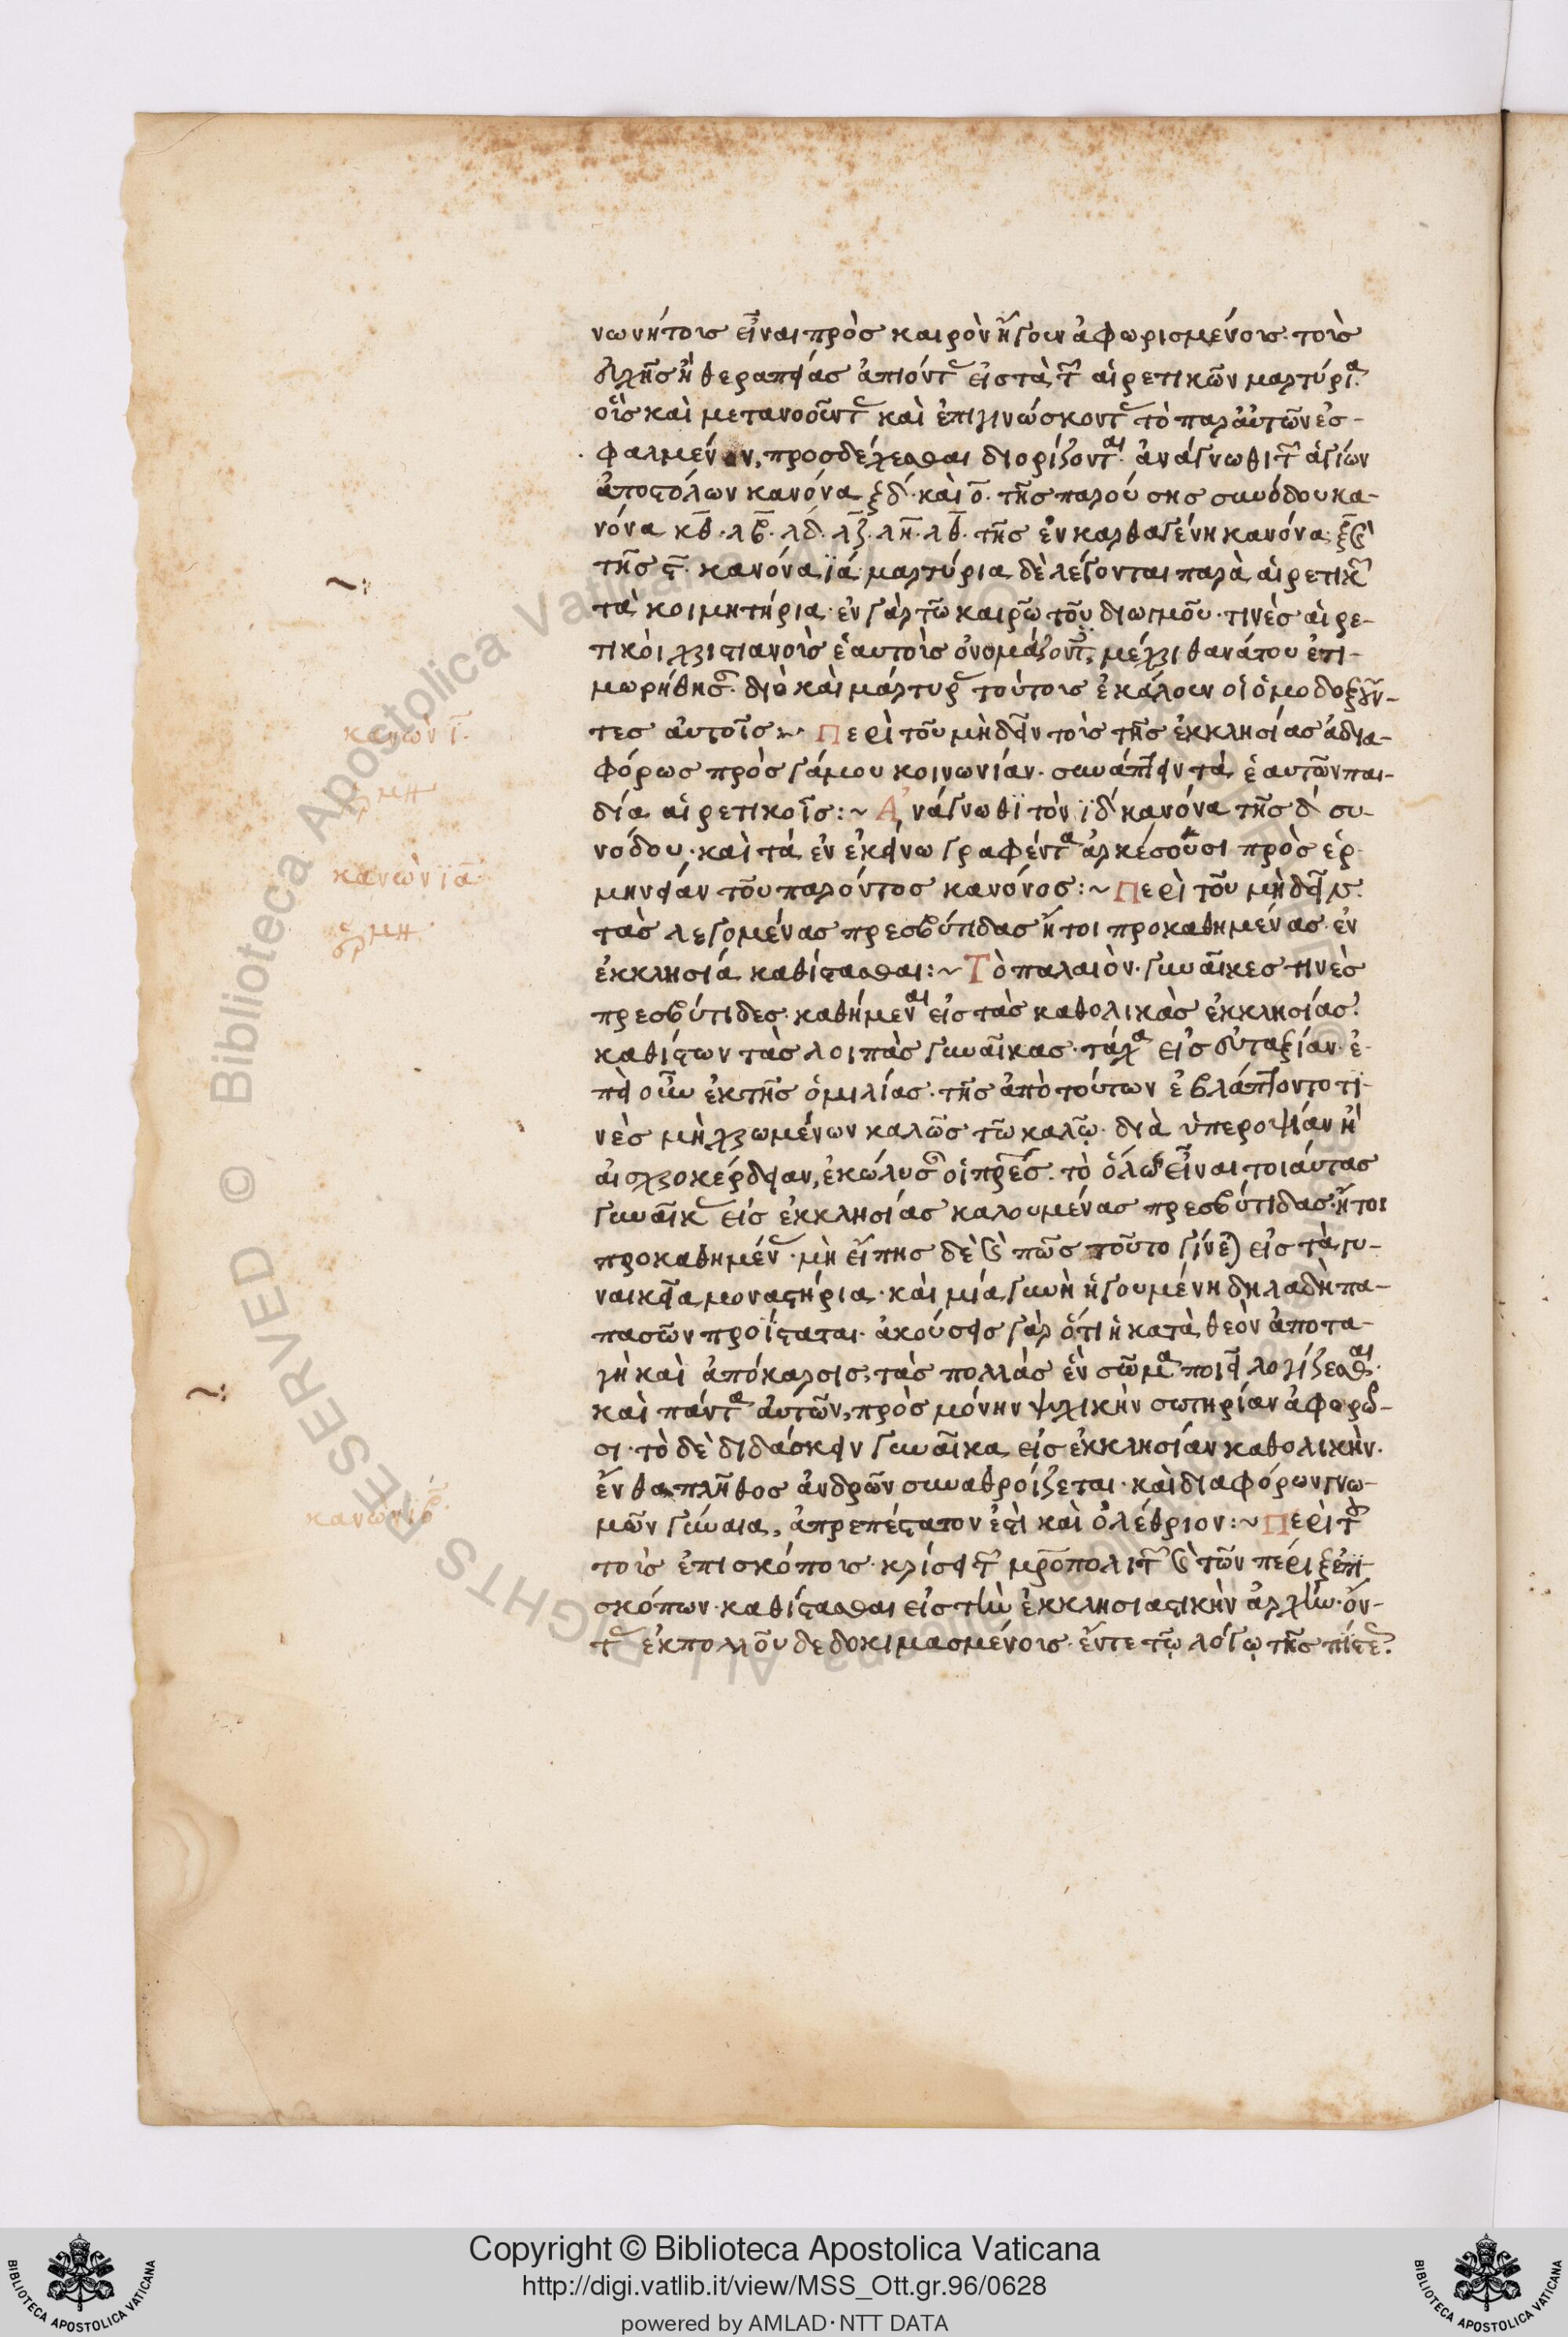 νωνήτους εἶναι πρὸς καιρὸν ἤγουν ἀφωρισμένους. τοὺς
εὐχῆς ἢ θεραπείας ἀπιόντας εἰς τὰ τῶν αἱρετικῶν μαρτύρια.
οὓς καὶ μετανοοῦντας καὶ ἐπιγινώσκοντας τὸ παρ' αὐτῶν ἐσ-
φαλμένον, προσδέχεσθαι διορίζονται. ἀνάγνωθι τῶν ἁγίων
ἀποστόλων κανόνα ξδ΄. καὶ ο΄. τῆς παρούσης συνόδου κα-
νόνα κθ΄. λβ΄. λδ΄. λζ΄. λη΄. λθ΄. τῆς ἐν καρθαγένη κανόνα
τῆς ϛ΄. κανόνα ϊα΄. μαρτύρια δὲ λέγονται παρὰ αἱρετικῶν
τὰ κοιμητήρια. ἐν γὰρ τῶ καιρῶ τοῦ διωγμοῦ. τινὲς αἱρε-
τικοὶ χριστιανοὺς ἑαυτοὺς ὀνομάζοντες, μέχρι θανάτου ἐτι-
μωρήθησαν. διὸ καὶ μάρτυρας τούτους ἐκάλουν οἱ ὁμοδοξοῦν-
τες αὐτοῖς :~ Περὶ τοῦ μὴ δεῖν τοὺς τῆς ἐκκλησίας ἀδια-
κανὼν ι΄.
φόρως πρὸς γάμου κοινωνίαν. συνάπτειν τὰ ἑαυτῶν παι-
δία αἱρετικοῖς :~ Ἀνάγνωθϊ τὸν ϊδ΄ κανόνα τῆς δ΄ συ-
ἑρμη
νόδου. καὶ τὰ ἐν ἐκείνω γραφέντα ἀρκέσουσι πρὸς ἑρ-
μηνείαν τοῦ παρόντος κανόνος :~ Περὶ τοῦ μὴ δεῖν
κανὼν ϊα΄
τὰς λεγομένας πρεσβύτιδας ἤτοι προκαθημένας. ἐν
ἐκκλησία καθίστασθαι :~ Τὸ παλαιὸν. γυναῖκες τινὲς
ἑρμη
πρεσβύτιδες. καθήμεναι εἰς τὰς καθολικὰς ἐκκλησίας.
καθίστων τὰς λοιπὰς γυναῖκας. τάχα εἰς εὐταξίαν. ἐ-
πεὶ οὖν ἐκ τῆς ὁμιλίας. τῆς ἀπὸ τούτων ἐβλάπτοντο τϊ-
νὲς μὴ χρωμένων καλῶς τῶ καλῷ. διὰ ὑπεροψίαν ἢ
αἰσχροκέρδειαν, ἐκώλυσαν οἱ πρες. τὸ ὅλως εἶναι τοιάυτας
γυναῖκας εἰς ἐκκλησίας καλουμένας πρεσβύτιδας. ἤτοι
προκαθημένας. μὴ εἴπης δὲ καὶ πῶς τοῦτο γίνεται εἰς τὰ γυ-
ναικεῖα μοναστήρια. καὶ μία γυνὴ ἡγουμένη δηλαδὴ πα-
πασῶν προΐσταται. ἀκούσεις γὰρ ὅτι ἡ κατὰ θεὸν ἀποτα-
γὴ καὶ ἀπόκαρσις, τὰς πολλὰς ἓν σῶμα ποιεῖ λογίζεσθαι.
καὶ πάντα ἀυτῶν, πρὸς μόνην ψυχικὴν σωτηρίαν ἀφορῶ-
σι. τὸ δὲ διδάσκειν γυναῖκα εἰς ἐκκλησίαν καθολικὴν.
ἔνθα πλῆθος ἀνδρῶν συναθροίζεται. καὶ διαφόρων γνω-
μῶν γύναια, ἀπρεπέστατον ἐστὶ καὶ ὀλέθριον :~ Περὶ τοῦ
κανὼν ιβ΄
τοὺς ἐπισκόπους. κρίσει τῶν μροπολιτῶν καὶ τῶν πέριξ ἐπϊ-
σκόπων. καθίστασθαι εἰς τὴν ἐκκλησιαστικὴν ἀρχὴν. ὄν-
τας ἐκ πολλοῦ δεδοκιμασμένους. ἔντε τῷ λόγῳ τῆς πίστεως.
© Biblioteca Apostolica Vaticana
ALL RIGHTS RESERVED
Copyright © Biblioteca Apostolica Vaticana
http://digi.vatlib.it/view/MSS_Ott.gr.96/0628
powered by AMLAD·NTT DATA
BIBLIOTECA APOSTOLICA VATICANA
BIBLIOTECA APOSTOLICA VATICANA